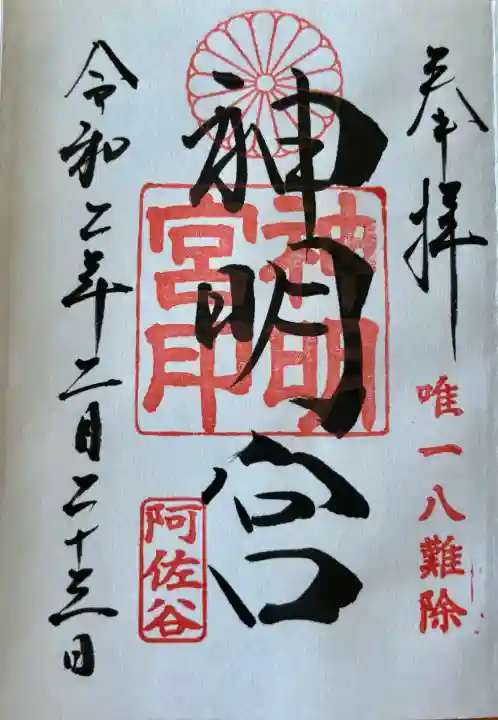 奉拝
唯一八難除
神明宮
神明
宮印
阿佐谷
令和二年二月二十三日